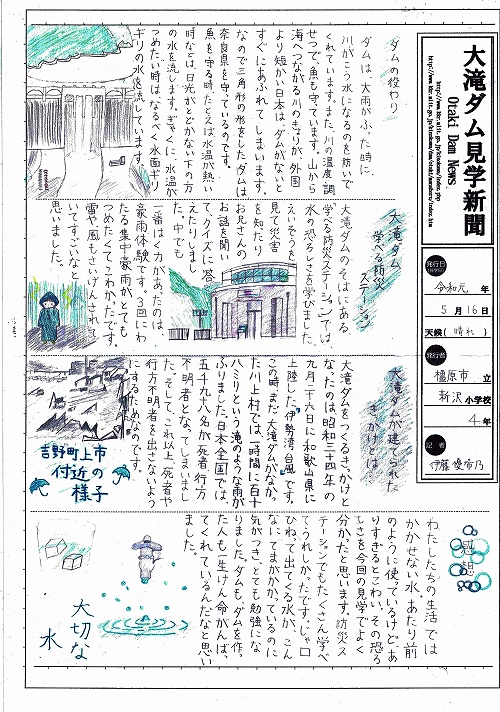 大滝ダム見学新聞
Otaki Dam News
発行日
令和元年
5月16日
天候(晴れ)
発行者
橿原市立
新沢小学校
4年
記者
ダムの役わり
ダムは、大雨がふった時に、
川がこう水になるのを防いで
くれています。また、川の温度調
せつで、魚も守ています。山から
海へつながる川のきょりが、外国
より短かい日本は、ダムがないと
すぐにあふれてしまいます。
なので三角形の形をしたダムは
奈良県を守ているのです。
魚を守る時、たとえば水温が熱い
時などは、日光がとどかない下の方
の水を流します。ぎゃくに、水温が
つめたい時は、なるべく水面ギリ
ギリの水を流しています。
大滝ダム
学べる防災
ステーション
大滝ダムのそばにある
学べる防災ステーションでは、
水の恐ろしさを学びました。
えいぞうを
見て災害
を知たり
お兄さんの
お話を聞い
て、クイズに答
えたりしまし
た。中でも
一番はく力があったのは、
豪雨体験です。3回にわ
たる集中豪雨がとても
つめたくてこわかったです。
雷や風もさいげんされて
いてすごいなと
思いました。
大滝ダムが建てられた
きかけとは
大滝ダムをつくるきかけと
なったのは昭和三十四年の
九月二十六日に和歌山県に
上陸した、伊勢湾台風です。
この時まだ大滝ダムがなか
た川上村では、一時間に百十
八ミリという滝のような雨が
ふりました。日本全国では、
五千九十八名が死者、行方
不明者となってしまいまし
た。そして、これ以上、死者や
行方不明者を出さないよう
にするためなのです。
吉野町上市
付近の
様子
感想
わたしたちの生活では
かかせない水。あたり前
のように使っているけど、あ
りすぎるとこわい、その恐ろ
しさを今回の見学でよく
分かったと思います。防災ス
テーションでもたくさん学べ
てうれしかったです。じゃ口
ひねって出てくる水が、こん
なにてまがかかっているのに
気がつき、とても勉強にな
りました。ダムも、ダムを作っ
た人も一生けん命がんば
てくれているんだなと思い
ました。
大切な
水